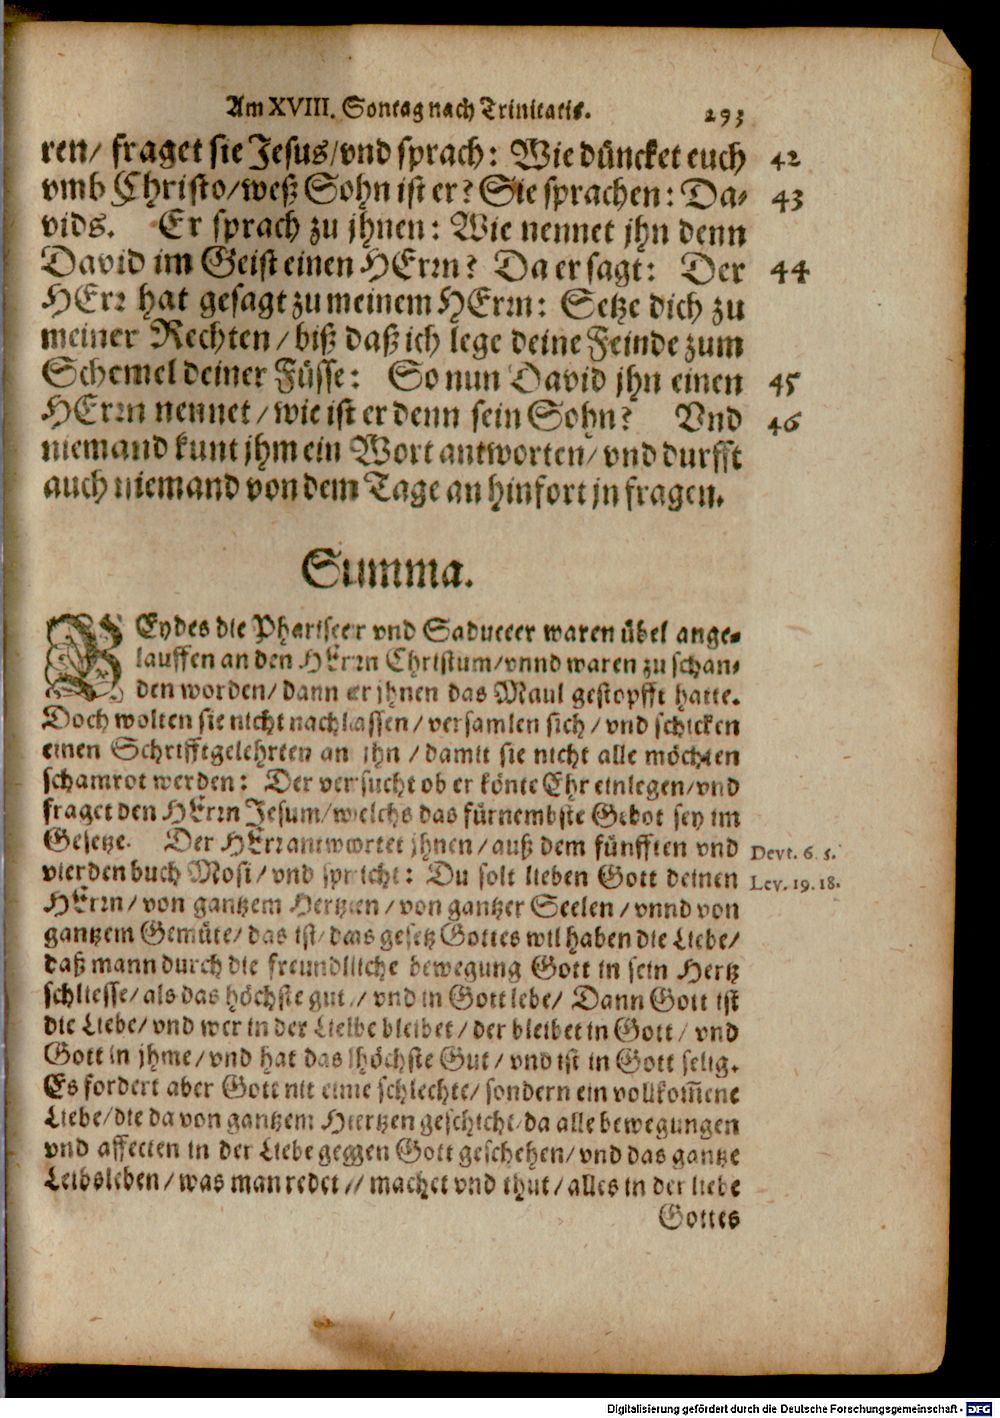 Am XVIII. Sontag nach Trinitatis. 293
ren/ fraget sie Jesus/vnd sprach: Wie düncket euch 42
vmb Christo/weß Sohn ist er? Sie sprachen: Da- 43
vids. Er sprach zu jhnen: Wie nennet jhn denn
David im Geist einen HErrn? Da er sagt: Der 44
HErr hat gesagt zu meinem HErrn: Setze dich zu
meiner Rechten/ biß daß ich lege deine Feinde zum
Schemel deiner Füsse: So nun David jhn einen 45
HErrn nennet/wie ist er denn sein Sohn? Vnd 46
niemand kunt jhm ein Wort antworten/ vnd durfft
auch niemand von dem Tage an hinfort jn fragen.
Summa.
BEydes die Phariseer vnd Saduceer waren übel ange-
lauffen an den HErrn Christum/vnnd waren zu schan-
den worden/ dann er jhnen das Maul gestopfft hatte.
Doch wolten sie nicht nachlassen/versamlen sich/vnd schicken
einen Schrifftgelehrten an jhn/damit sie nicht alle möchten
schamrot werden: Der versucht ob er könte Ehr einlegen/vnd
fraget den HErrn Jesum/welchs das fürnembste Gebot sey im
Gesetze. Der HErr antwortet jhnen/auß dem fünfften vnd Devt. 6. 5.
vierden buch Mosi/vnd spricht: Du solt lieben Gott deinen Lev. 19. 18.
HErrn/von gantzem Hertzen/von gantzer Seelen/vnnd von
gantzem Gemüte/das ist/das gesetz Gottes wil haben die Liebe/
daß mann durch die freundliche bewegung Gott in sein Hertz
schliesse/als das höchste gut/vnd in Gott lebe/ Dann Gott ist
die Liebe/vnd wer in der Liebe bleibet/der bleibet in Gott/vnd
Gott in jhme/vnd hat das höchste Gut/vnd ist in Gott selig.
Es fordert aber Gott nit eine schlechte/sondern ein vollkom̃ene
Liebe/die da von gantzem Hertzen geschicht/da alle bewegungen
vnd affecten in der Liebe gegen Gott geschehen/vnd das gantze
Leibsleben/was man redet/machet vnd thut/alles in der liebe
Gottes
Digitalisierung gefördert durch die Deutsche Forschungsgemeinschaft - DFG